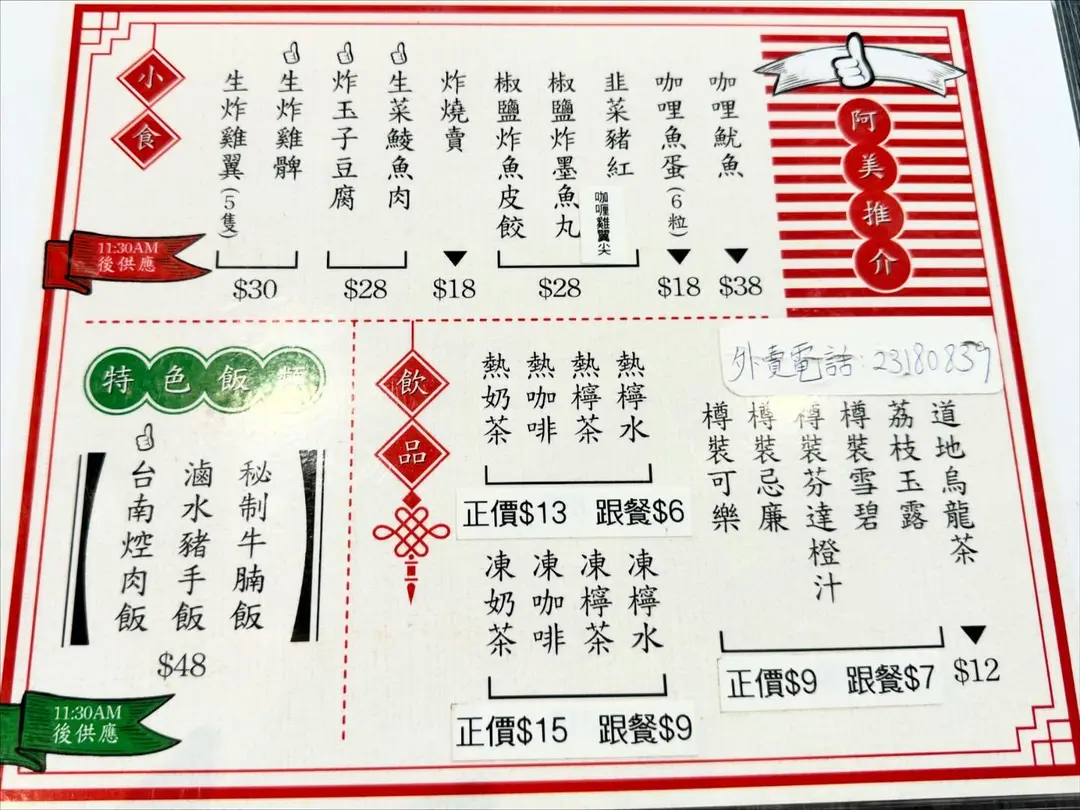 阿美推介
咖哩魷魚
$38
咖哩魚蛋(6粒)
$18
韭菜豬紅
咖喱雞翼尖
椒鹽炸墨魚丸
椒鹽炸魚皮餃
$28
炸燒賣
$18
生菜鯪魚肉
炸玉子豆腐
$28
生炸雞髀
生炸雞翼(5隻)
$30
小食
11:30AM
後供應
外賣電話:23180839
道地烏龍茶
$12
荔枝玉露
樽裝雪碧
樽裝芬達橙汁
樽裝忌廉
樽裝可樂
正價$9 跟餐$7
飲品
熱檸水
熱檸茶
熱咖啡
熱奶茶
正價$13 跟餐$6
凍檸水
凍檸茶
凍咖啡
凍奶茶
正價$15 跟餐$9
特色飯類
秘制牛腩飯
滷水豬手飯
台南焢肉飯
$48
11:30AM
後供應